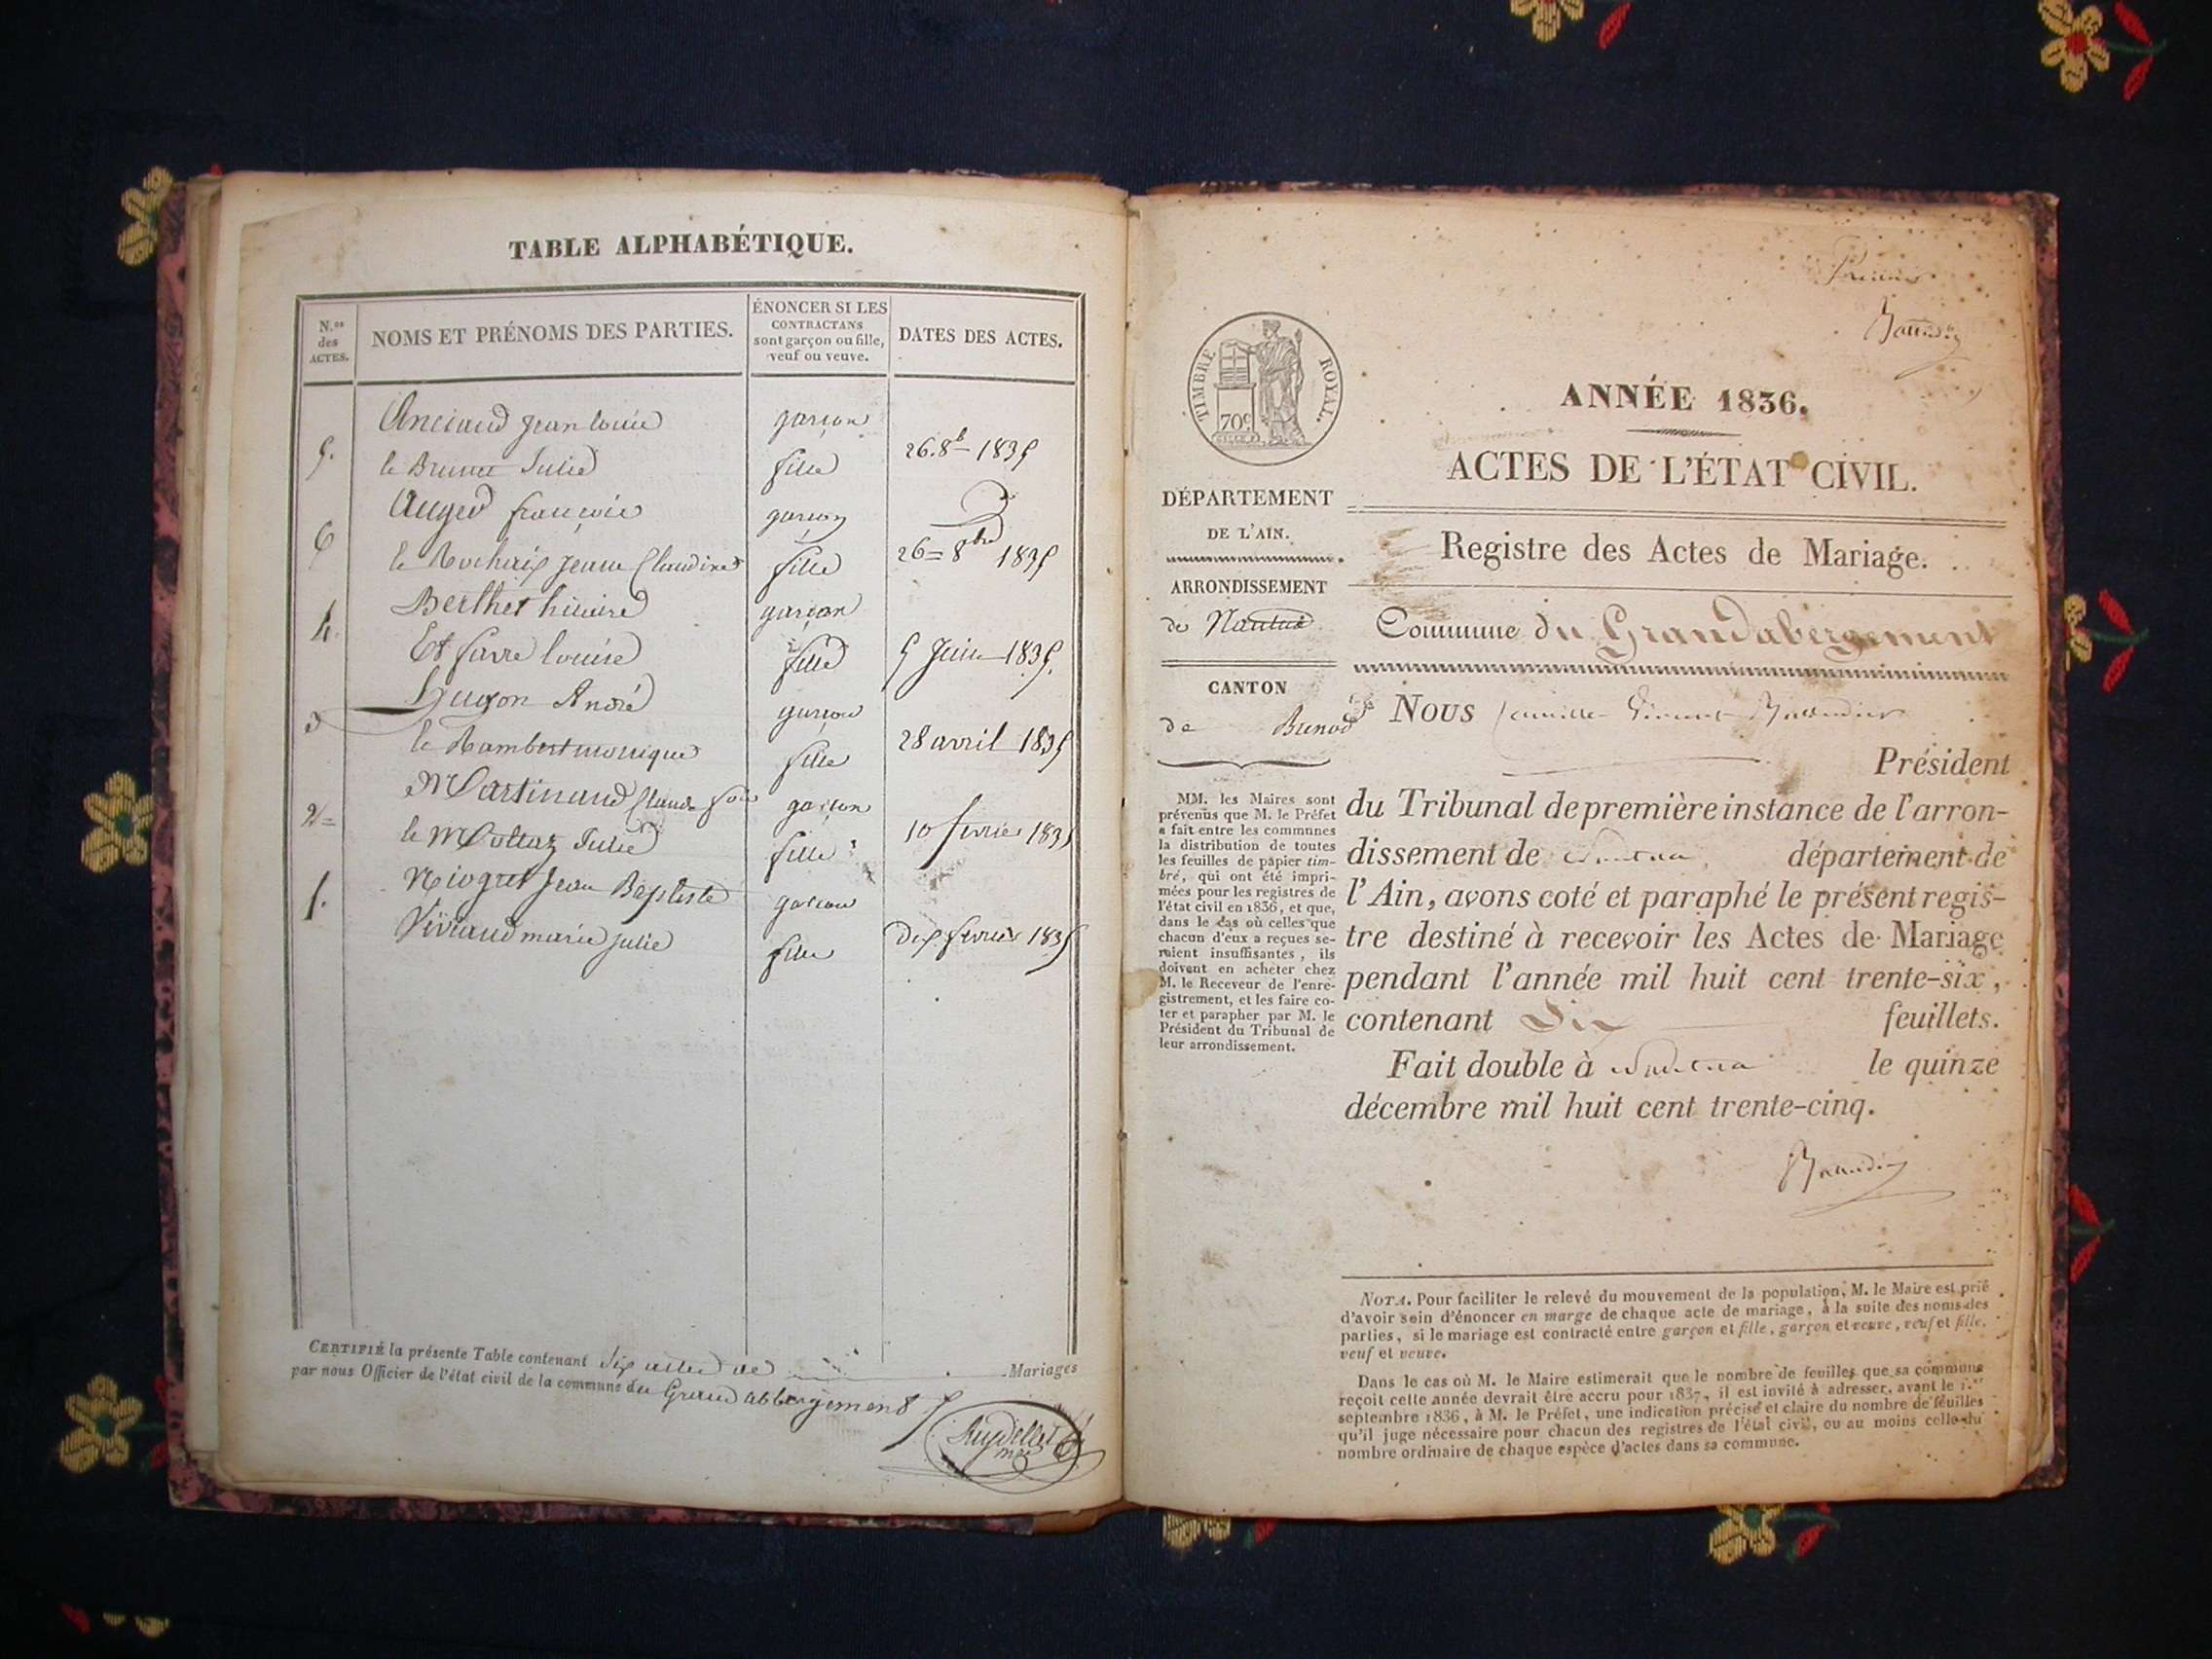 TABLE ALPHABÉTIQUE.
N.os des ACTES.
NOMS ET PRÉNOMS DES PARTIES.
ÉNONCER SI LES
CONTRACTANS
sont garçon ou fille,
veuf ou veuve.
DATES DES ACTES.
Anciand jean louis garçon
5. le Brunet Julie fille 26. 8b 1835
Auger françois garçon
6 le Rochaix jeanne Claudine fille 26 = 8bre 1835
Berthet hilaire garçon
4. Et favre louise fille 5 Juin 1835.
Hugon André garçon
3 le Rambert monique fille 28 avril 1835
Martinand Claude garçon
2 = le Mollaz Julie fille 10 février 1835
Niogret Jean Baptiste garçon
1. Viviand marie julie fille Dix février 1835
CERTIFIÉ la présente Table contenant Six actes de Mariages
par nous Officier de l'état civil de la commune du Grand abbergement
Premier
TIMBRE ROYAL.
70c
ANNÉE 1836.
ACTES DE L'ÉTAT CIVIL.
Registre des Actes de Mariage.
Commune du Grandabergement
DÉPARTEMENT
DE L'AIN.
ARRONDISSEMENT
de Nantua
CANTON
de Brenod
MM. les Maires sont
prévenus que M. le Préfet
a fait entre les communes
la distribution de toutes
les feuilles de papier tim-
bré, qui ont été impri-
mées pour les registres de
l'état civil en 1836, et que,
dans le cas où celles que
chacun d'eux a reçues se-
raient insuffisantes, ils
doivent en acheter chez
M. le Receveur de l'enre-
gistrement, et les faire co-
ter et parapher par M. le
Président du Tribunal de
leur arrondissement.
Nous Camille Vincent
Président
du Tribunal de première instance de l'arron-
dissement de Nantua, département de
l'Ain, avons coté et paraphé le présent regis-
tre destiné à recevoir les Actes de Mariage
pendant l'année mil huit cent trente-six,
contenant Dix feuillets.
Fait double à Nantua le quinze
décembre mil huit cent trente-cinq.
NOTA. Pour faciliter le relevé du mouvement de la population, M. le Maire est prié
d'avoir soin d'énoncer en marge de chaque acte de mariage, à la suite des noms des
parties, si le mariage est contracté entre garçon et fille, garçon et veuve, veuf et fille,
veuf et veuve.
Dans le cas où M. le Maire estimerait que le nombre de feuilles que sa commune
reçoit cette année devrait être accru pour 1837, il est invité à adresser, avant le 1.er
septembre 1836, à M. le Préfet, une indication précise et claire du nombre de feuilles
qu'il juge nécessaire pour chacun des registres de l'état civil, ou au moins celle du
nombre ordinaire de chaque espèce d'actes dans sa commune.